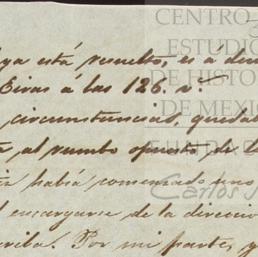 ya está resuelto, es á de
Eivas á las 126. v.
circunstancias, queda
al rumbo opuesto de l
había comenzado uno
encargarse de la direcció
arriba. Por mi parte, y
CENTRO
ESTUDIO
DE HISTO
DE MEXI
FUNDA
Carlos S